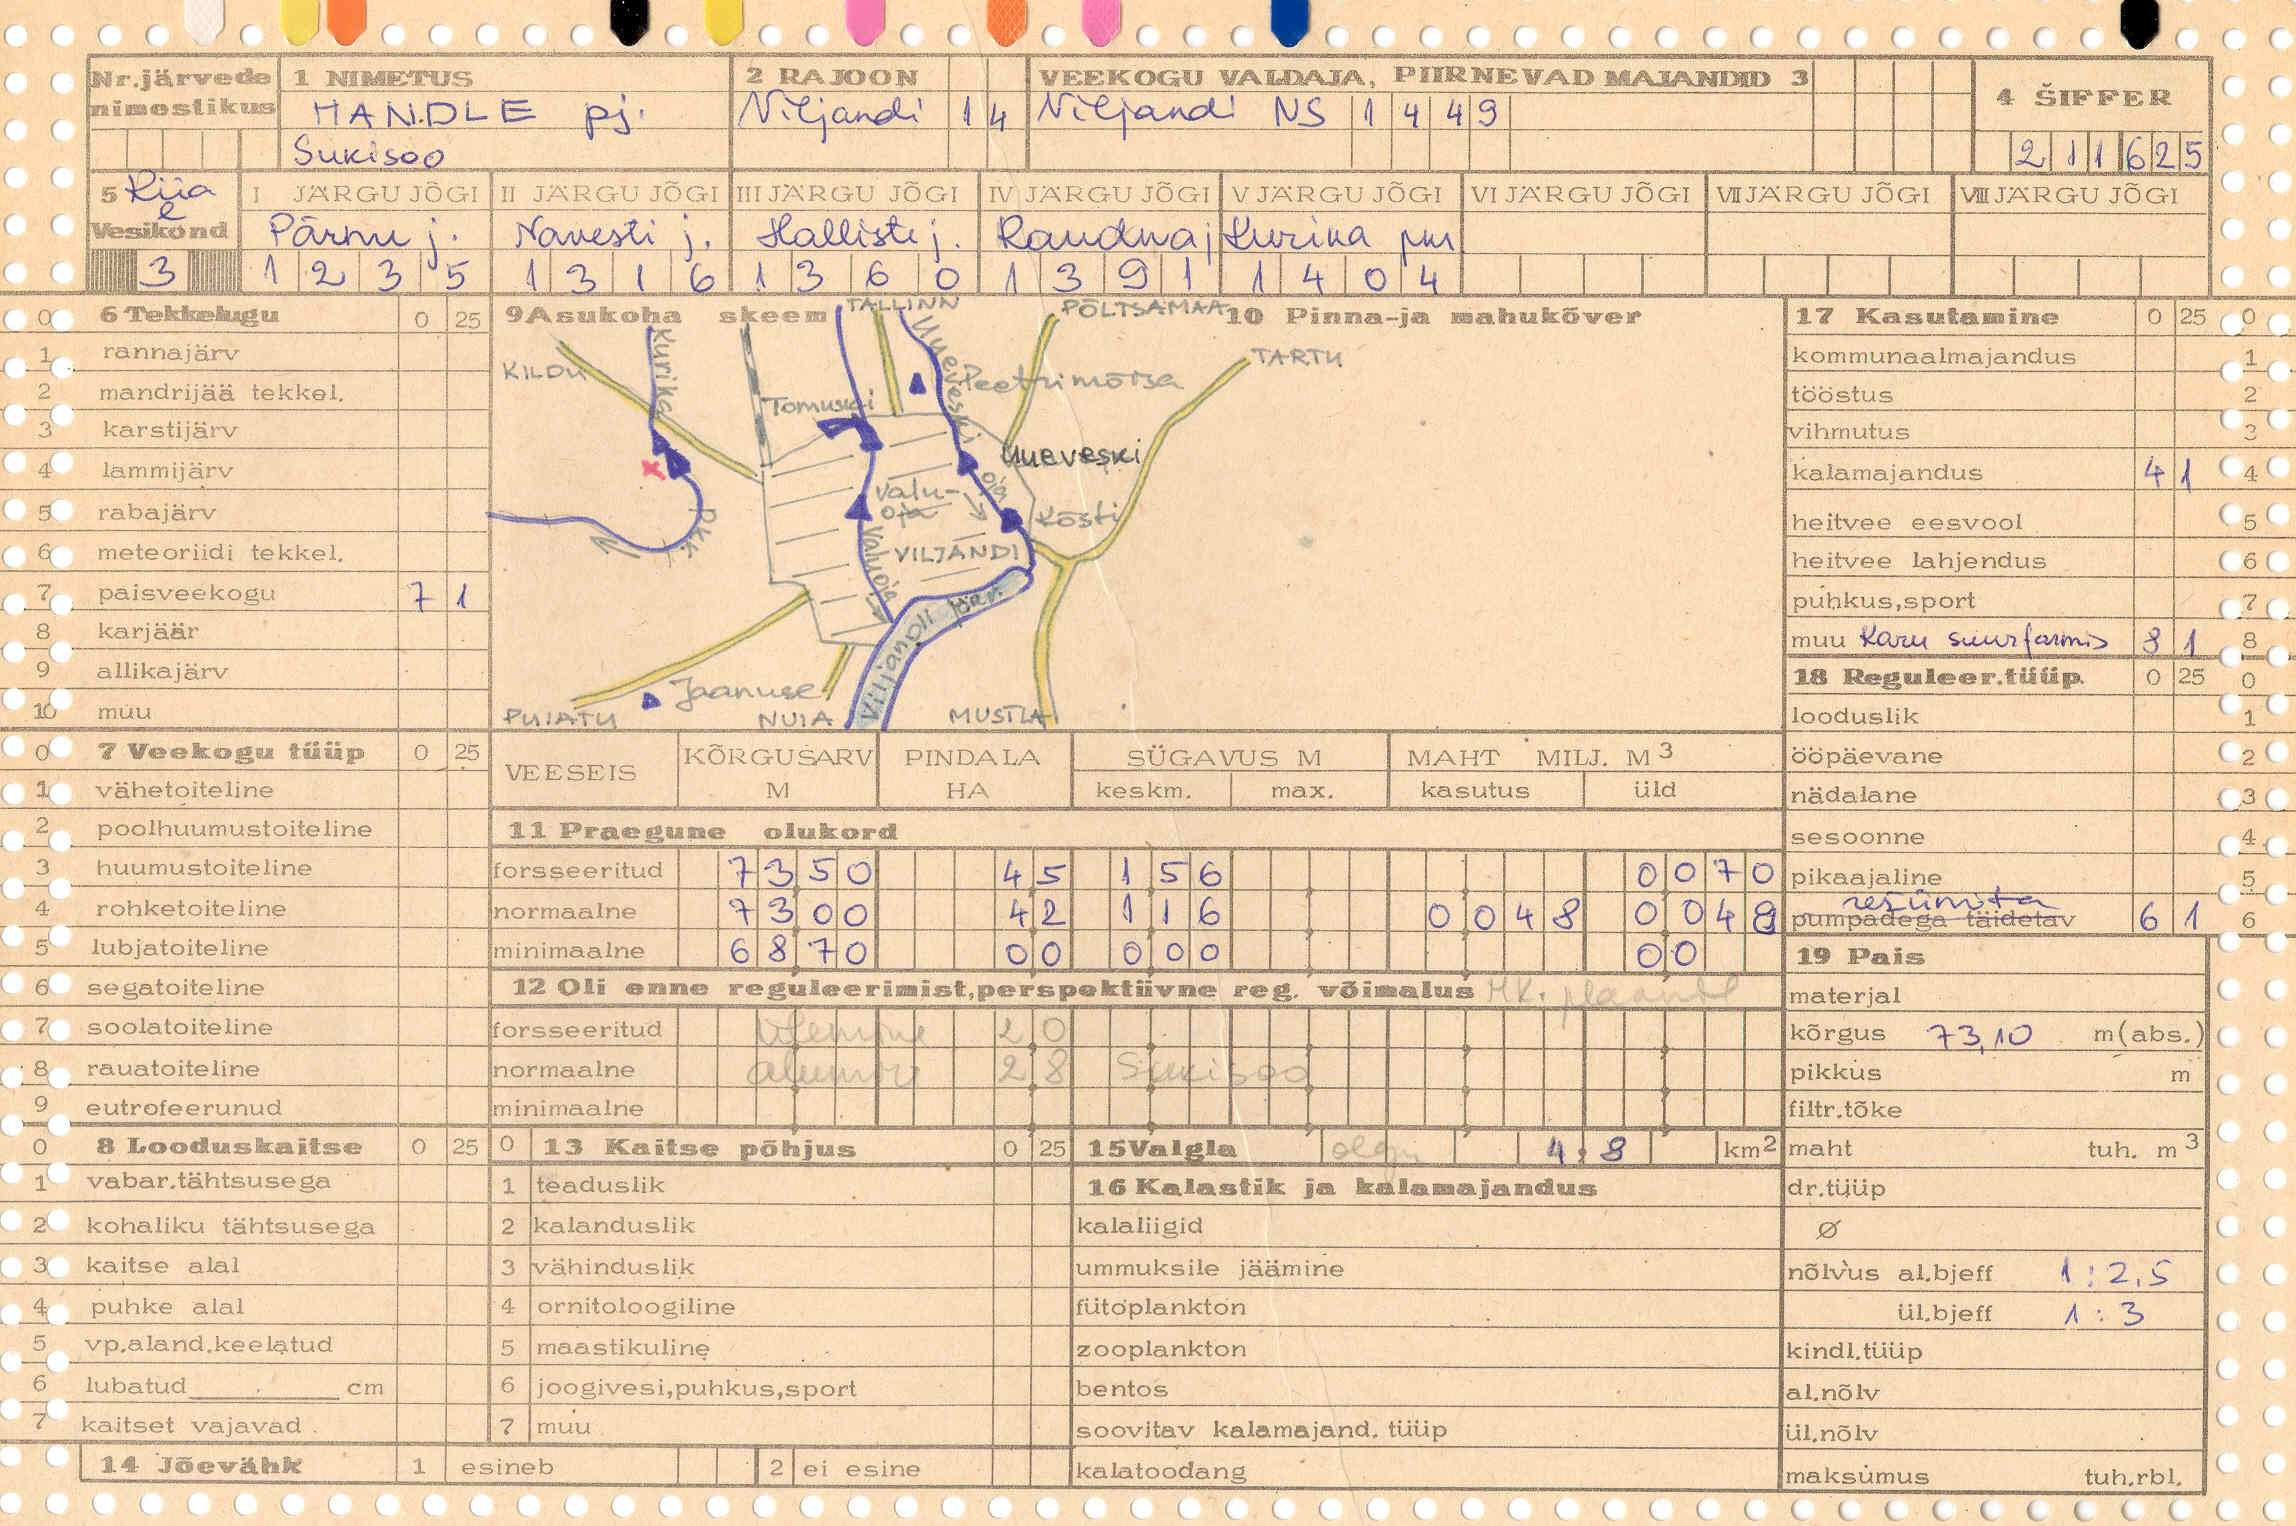 Nr.järvede nimestikus
1 NIMETUS
HANDLE pj.
Sukisoo
2 RAJOON
Viljandi 14
VEEKOGU VALDAJA, PIIRNEVAD MAJANDID 3
Viljandi NS 1449
4 ŠIFFER
211625
5 Vesikond
Riia
e
3
I JÄRGU JÕGI
Pärnu j.
1235
II JÄRGU JÕGI
Navesti j.
1316
III JÄRGU JÕGI
Halliste j.
1360
IV JÄRGU JÕGI
Raudna j
1391
V JÄRGU JÕGI
Kurika pkr
1404
VI JÄRGU JÕGI
VII JÄRGU JÕGI
VIII JÄRGU JÕGI
0 6 Tekkelugu 0 25
1 rannajärv
2 mandrijää tekkel.
3 karstijärv
4 lammijärv
5 rabajärv
6 meteoriidi tekkel.
7 paisveekogu 7 1
8 karjäär
9 allikajärv
10 muu
0 7 Veekogu tüüp 0 25
1 vähetoiteline
2 poolhuumustoiteline
3 huumustoiteline
4 rohketoiteline
5 lubjatoiteline
6 segatoiteline
7 soolatoiteline
8 rauatoiteline
9 eutrofeerunud
0 8 Looduskaitse 0 25
1 vabar.tähtsusega
2 kohaliku tähtsusega
3 kaitse alal
4 puhke alal
5 vp.aland.keelatud
6 lubatud cm
7 kaitset vajavad
14 Jõevähk 1 esineb 2 ei esine
9 Asukoha skeem
TALLINN
PÕLTSAMAA
KILDU
Kurika
Uueveski
Peetrimõisa
TARTU
Tomuski
Uueveski
oja
Valu-
oja
Kösti
PKK
Valuoja
VILJANDI
Viljandi järv
Jaanuse
PUIATU
NUIA
MUSTLA
10 Pinna-ja mahukõver
VEESEIS
KÕRGUSARV M
PINDALA HA
SÜGAVUS M
keskm. max.
MAHT MILJ. M3
kasutus üld
11 Praegune olukord
forsseeritud 7350 45 156 0070
normaalne 7300 42 116 0048 0048
minimaalne 6870 00 000 00
12 Oli enne reguleerimist,perspektiivne reg. võimalus MK. plaanil
forsseeritud ülemine 20
normaalne alumine 28 Sukisoo
minimaalne
0 13 Kaitse põhjus 0 25
1 teaduslik
2 kalanduslik
3 vähinduslik
4 ornitoloogiline
5 maastikuline
6 joogivesi,puhkus,sport
7 muu
15 Valgla 4,8 km2
16 Kalastik ja kalamajandus
kalaliigid
ummuksile jäämine
fütoplankton
zooplankton
bentos
soovitav kalamajand. tüüp
kalatoodang
17 Kasutamine 0 25 0
kommunaalmajandus 1
tööstus 2
vihmutus 3
kalamajandus 4 1 4
heitvee eesvool 5
heitvee lahjendus 6
puhkus,sport 7
muu Karu suurfarmis 8 1 8
18 Reguleer.tüüp 0 25 0
looduslik 1
ööpäevane 2
nädalane 3
sesoonne 4
pikaajaline 5
pumpadega täidetav 6 1 6
19 Pais
materjal
kõrgus 73,10 m(abs.)
pikkus m
filtr.tõke
maht tuh. m3
dr.tüüp
Ø
nõlvus al.bjeff 1:2,5
ül.bjeff 1:3
kindl.tüüp
al.nõlv
ül.nõlv
maksumus tuh.rbl.